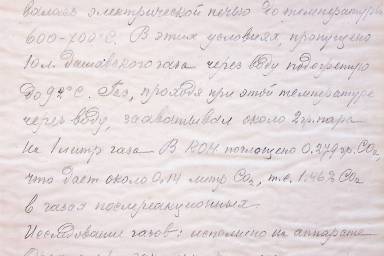 валась электрической печью до температуры
600-700°С. В этих условиях пропущено
10л. Дашавского газа через воду подогретую
до 92°С. Газ, проходя при этой температуре
через воду, захватывал около 2гр. пара
на 1 литр газа В КОН поглощено 0.279гр. CO₂,
что дает около 0,14 литр CO₂, т.е. 1.4% CO₂
в газах послереакционных
Исследование газов: исполнено на аппарате